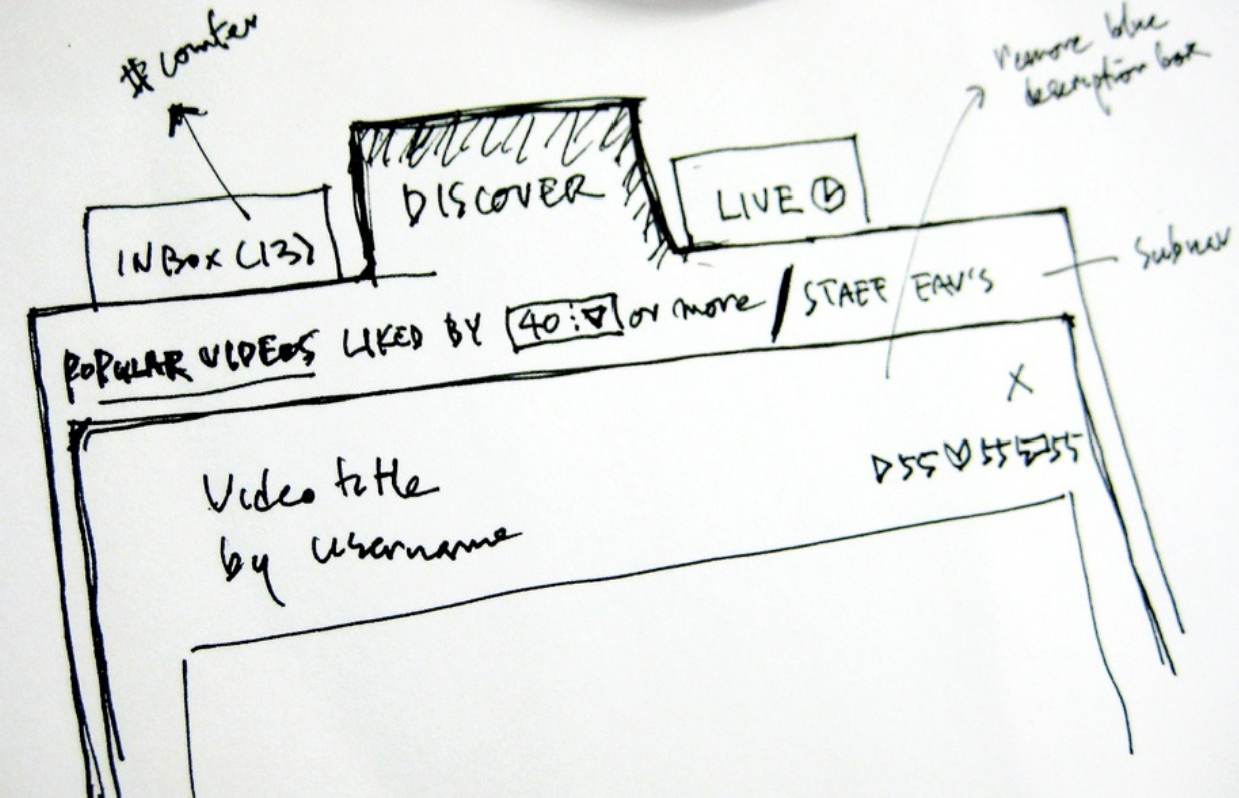 # counter
remove blue
description box
DISCOVER
LIVE
INBOX (13)
Subnav
POPULAR VIDEOS LIKED BY 40 or more / STAFF FAV'S
X
55 55 55
Video title
by username